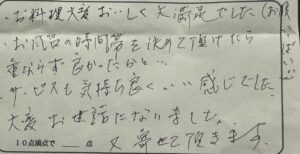 ・お料理大変おいしく大満足でした(お腹いっぱい)
・お風呂の時間帯を決めて頂けたら
重ならず良かったかと…
サービスも気持ち良く…感じでした
大変お世話になりました。
又寄せて頂きます。
10点満点で 点